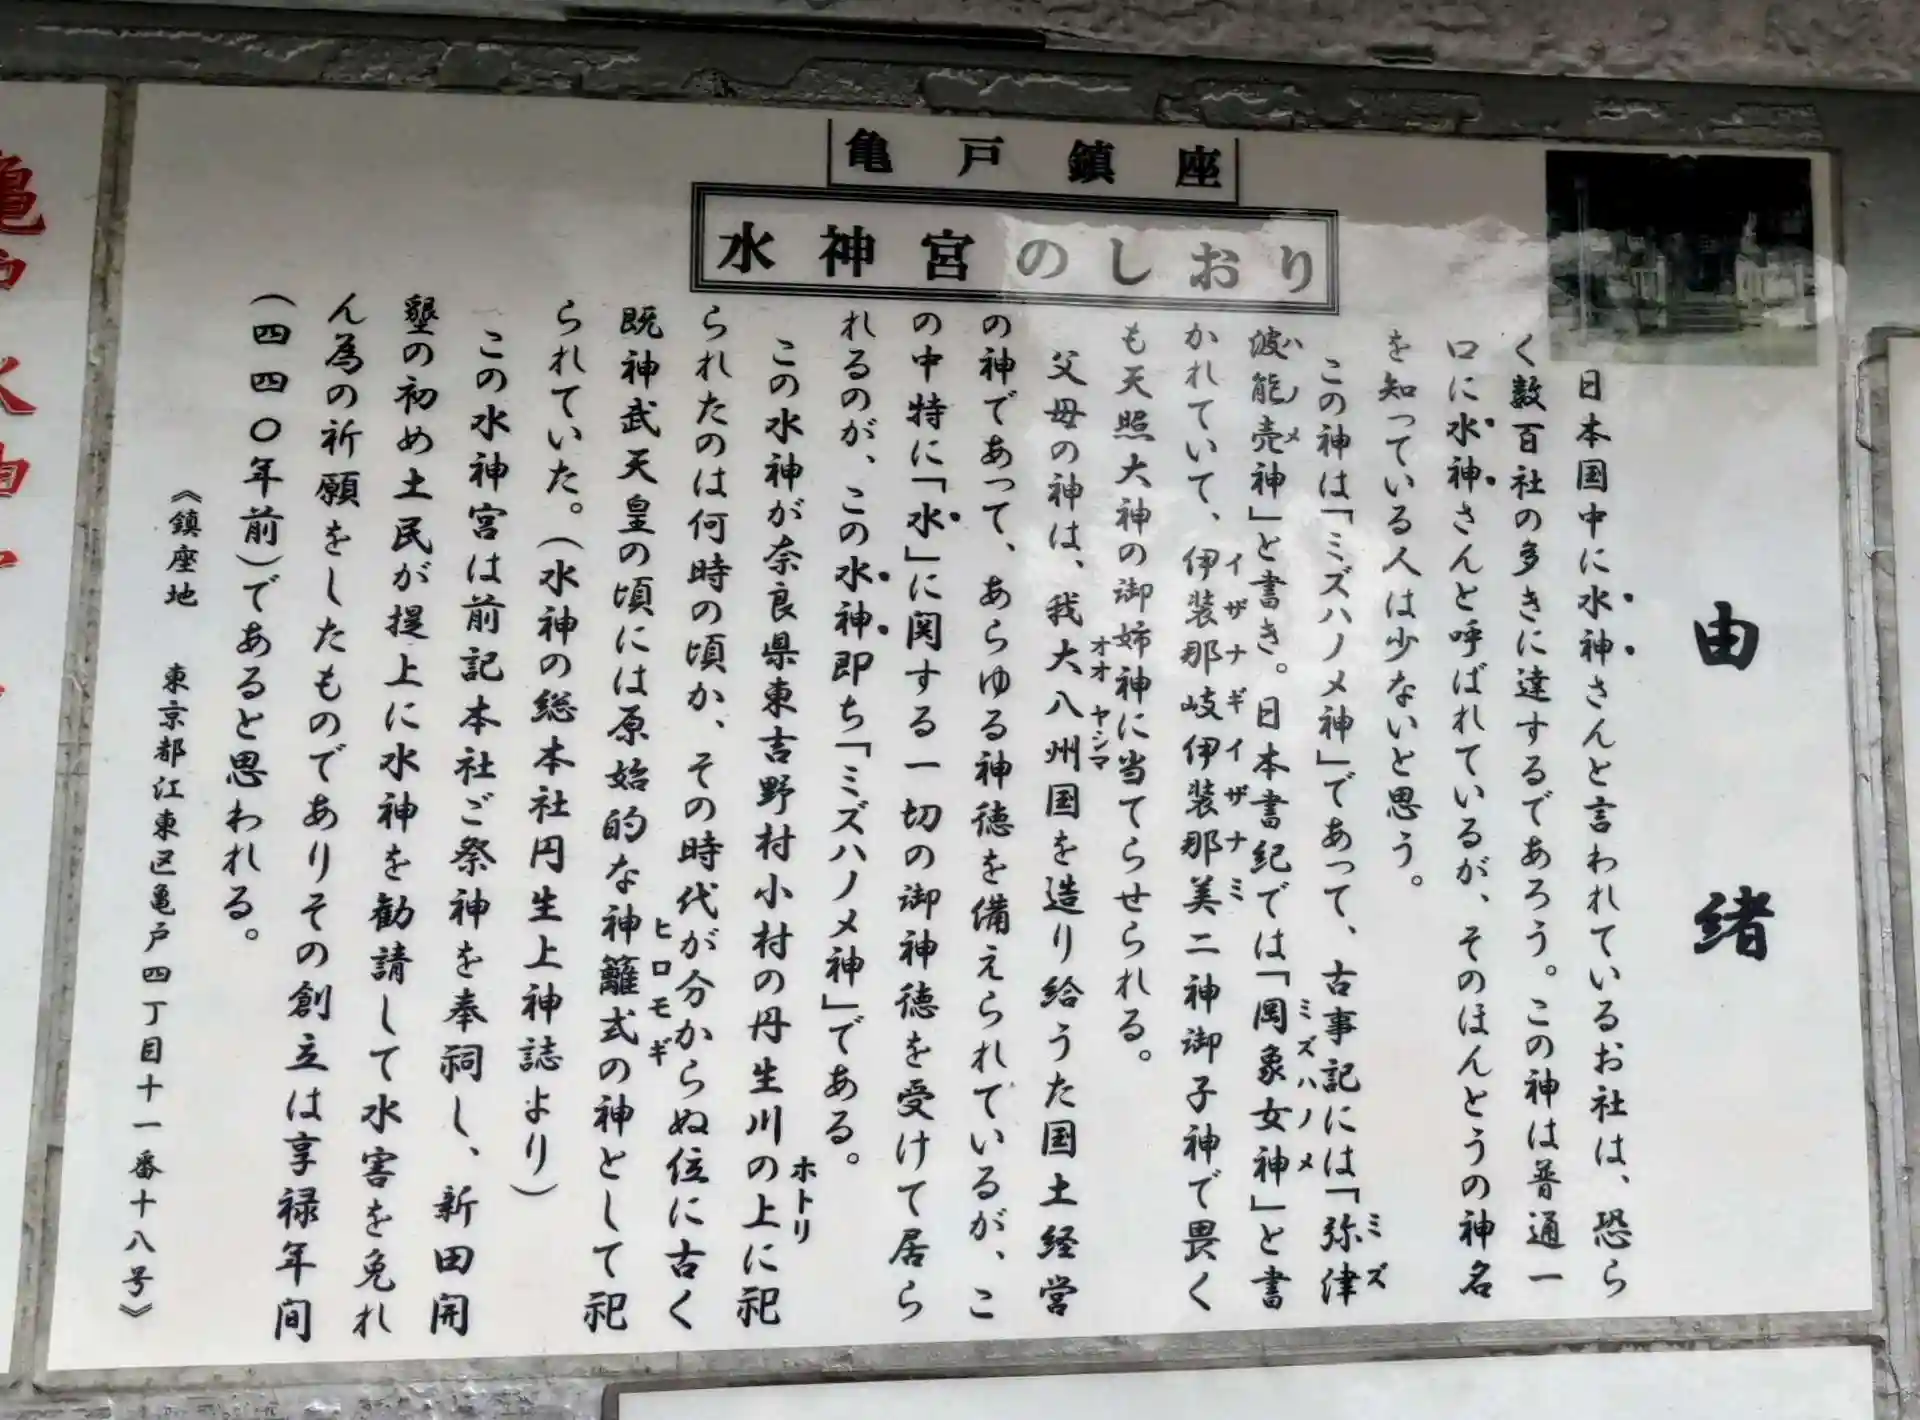 亀戸鎮座
水神宮のしおり
由緒
日本国中に水神さんと言われているお社は、恐ら
く数百社の多きに達するであろう。この神は普通一
口に水神さんと呼ばれているが、そのほんとうの神名
を知っている人は少ないと思う。
この神は「ミズハノメ神」であって、古事記には「弥津
ミズ
波能売神」と書き。日本書紀では「罔象女神」と書
ハノメ
ミズハノメ
かれていて、伊装那岐伊装那美二神御子神で畏く
イザナギイザナミ
も天照大神の御姉神に当てらせられる。
父母の神は、我大八州国を造り給うた国土経営
オオヤシマ
の神であって、あらゆる神徳を備えられているが、こ
の中特に「水」に関する一切の御神徳を受けて居ら
れるのが、この水神即ち「ミズハノメ神」である。
この水神が奈良県東吉野村小村の丹生川の上に祀
ホトリ
られたのは何時の頃か、その時代が分からぬ位に古く
既神武天皇の頃には原始的な神籬式の神として祀
ヒロモギ
られていた。(水神の総本社円生上神誌より)
この水神宮は前記本社ご祭神を奉祠し、新田開
墾の初め土民が提上に水神を勧請して水害を免れ
ん為の祈願をしたものでありその創立は享禄年间
(四四〇年前)であると思われる。
《鎮座地 東京都江東区亀戸四丁目十一番十八号》